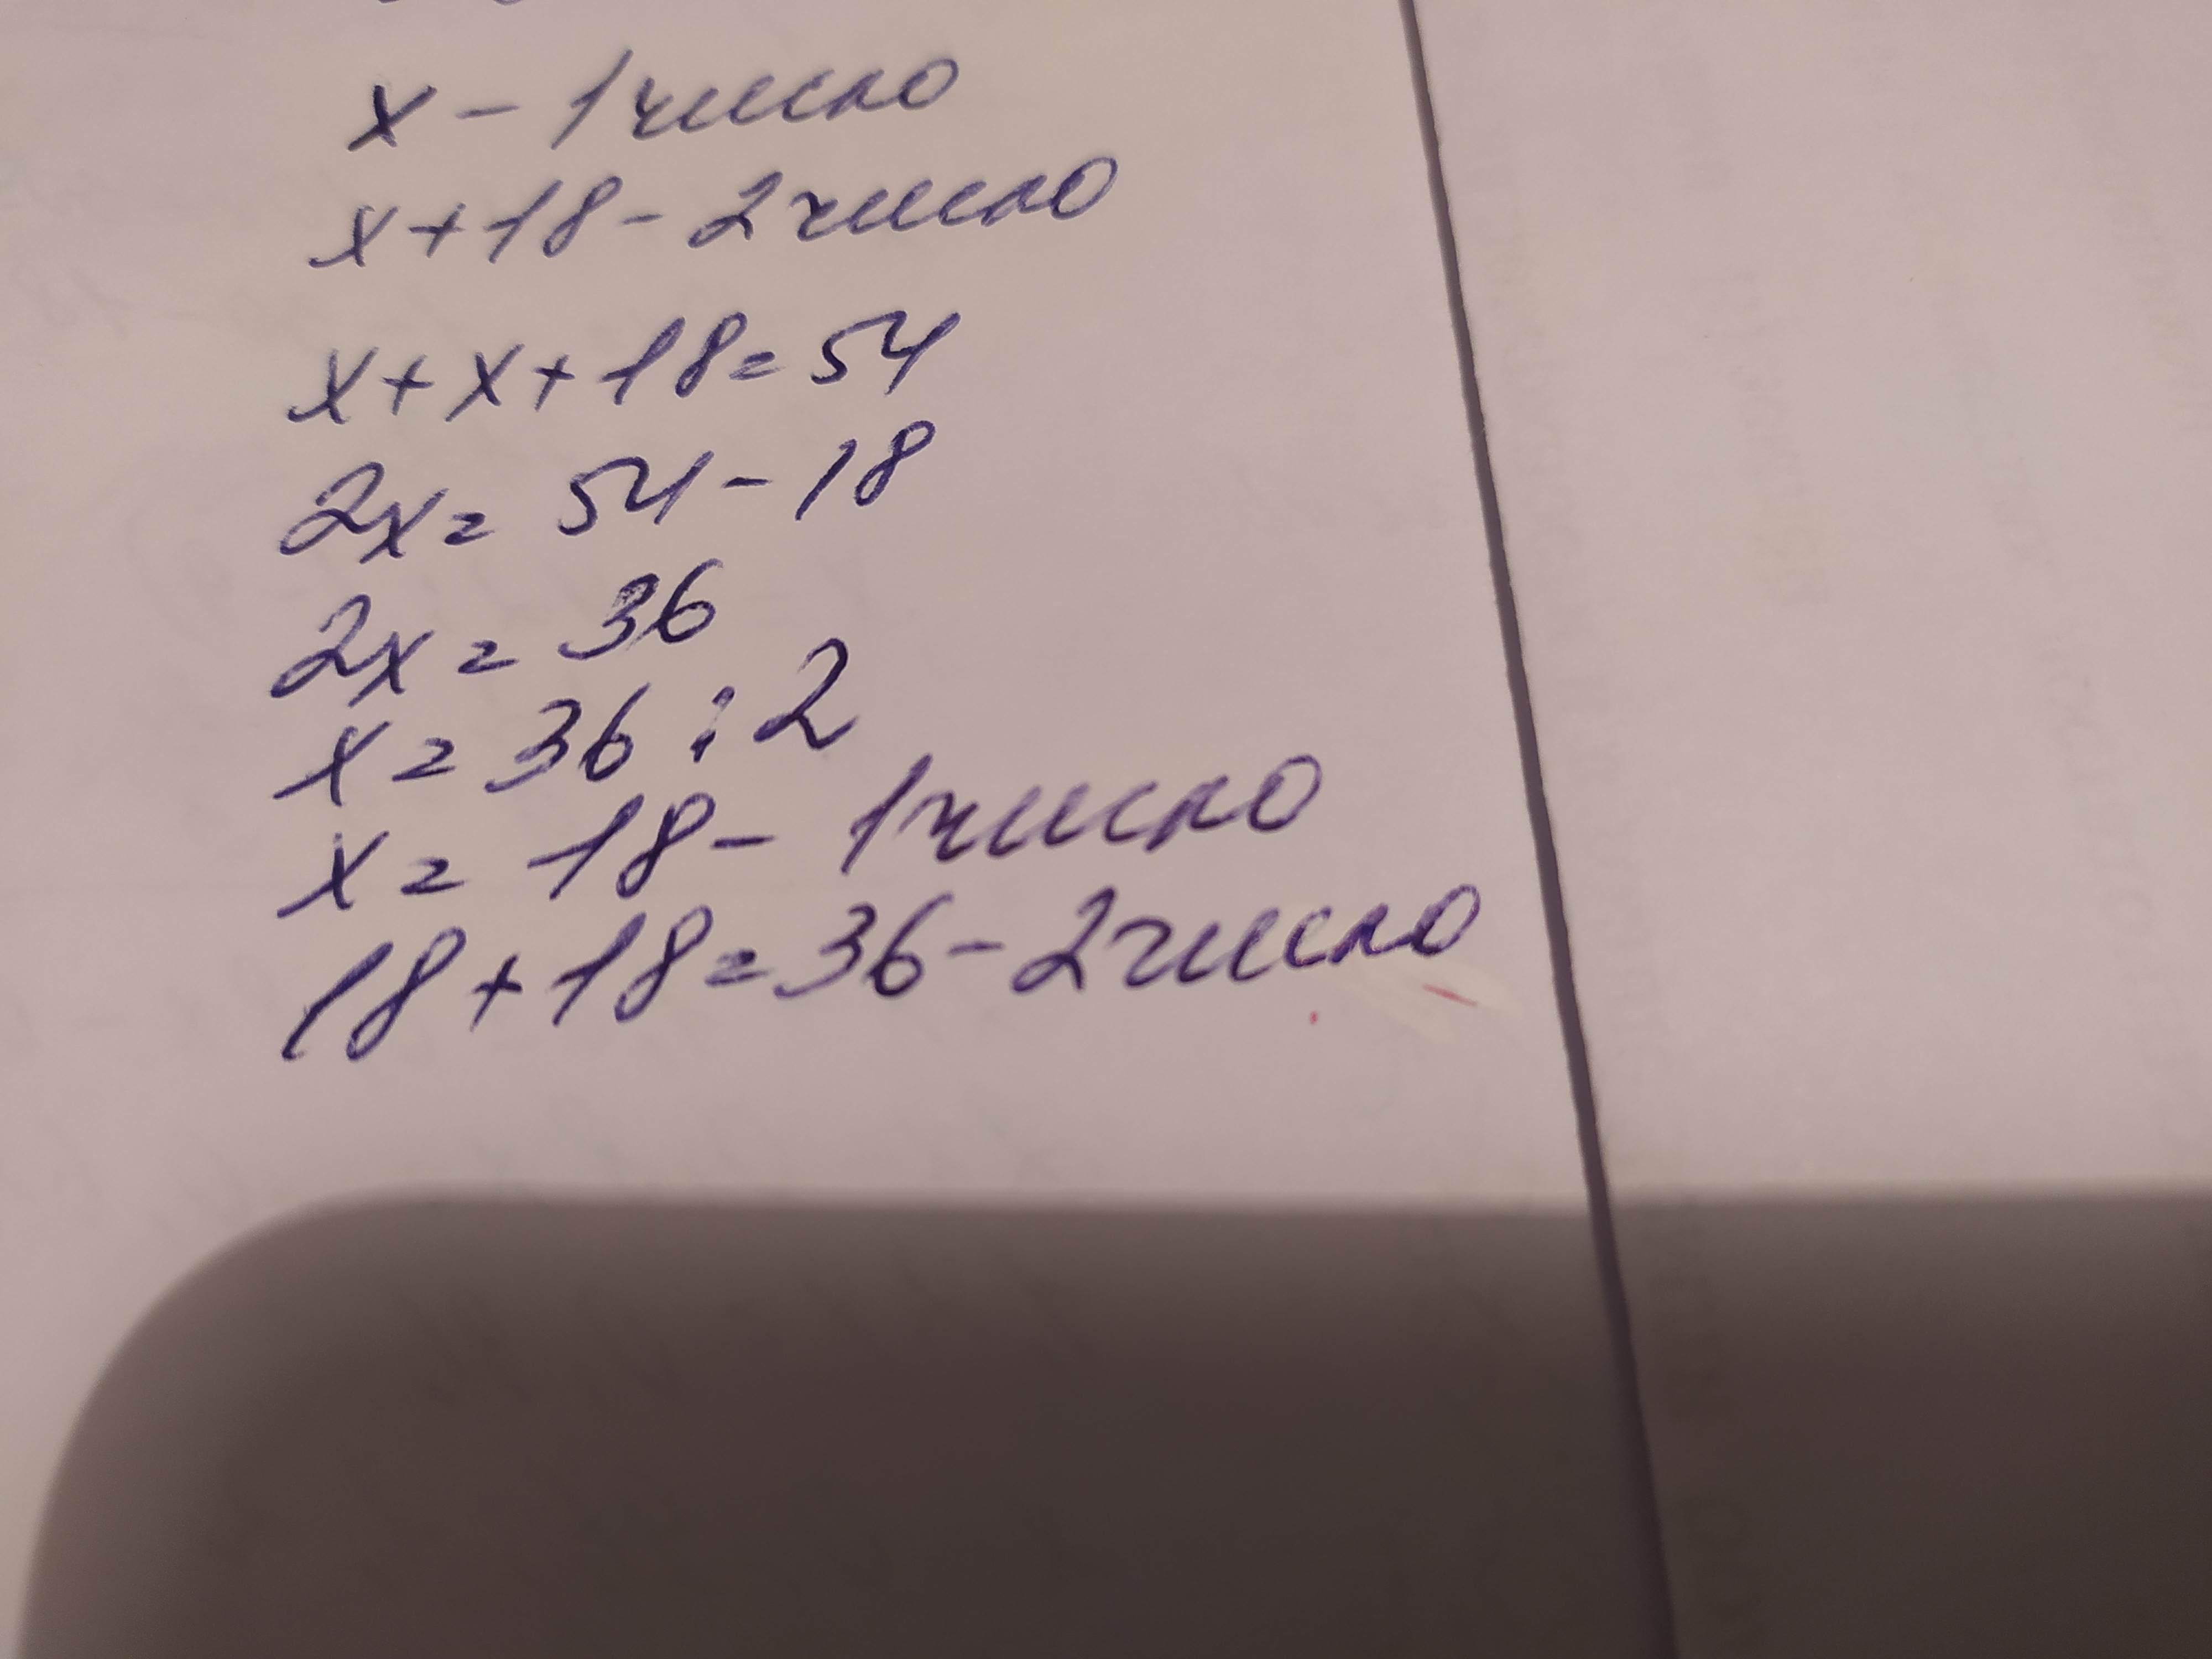 x - 1 число
x + 18 - 2 число
x + x + 18 = 54
2x = 54 - 18
2x = 36
x = 36 : 2
x = 18 - 1 число
18 + 18 = 36 - 2 число